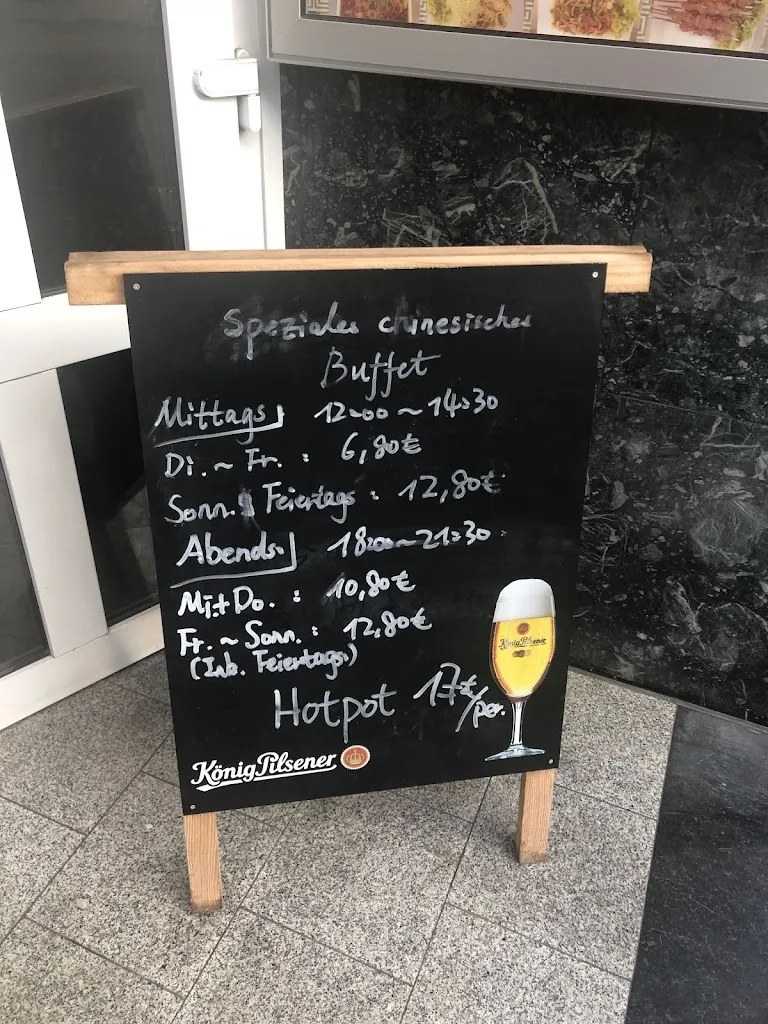 Speziales chinesisches
Buffet
Mittags 12:00 ~ 14:30
Di. ~ Fr. : 6,80€
Sonn. & Feiertags : 12,80€
Abends. 18:00 ~ 21:30
Mi+Do. : 10,80€
Fr. ~ Sonn. : 12,80€
(Ink. Feiertags.)
Hotpot 17€/per.
König Pilsener
König Pilsener